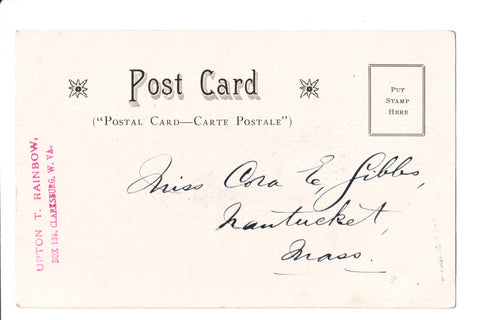 Post Card
("Postal Card—Carte Postale")
PUT
STAMP
HERE
UPTON T. RAINBOW,
BOX 134, CLARKSBURG, W. VA.
Miss Cora E. Gibbs,
Nantucket,
Mass.